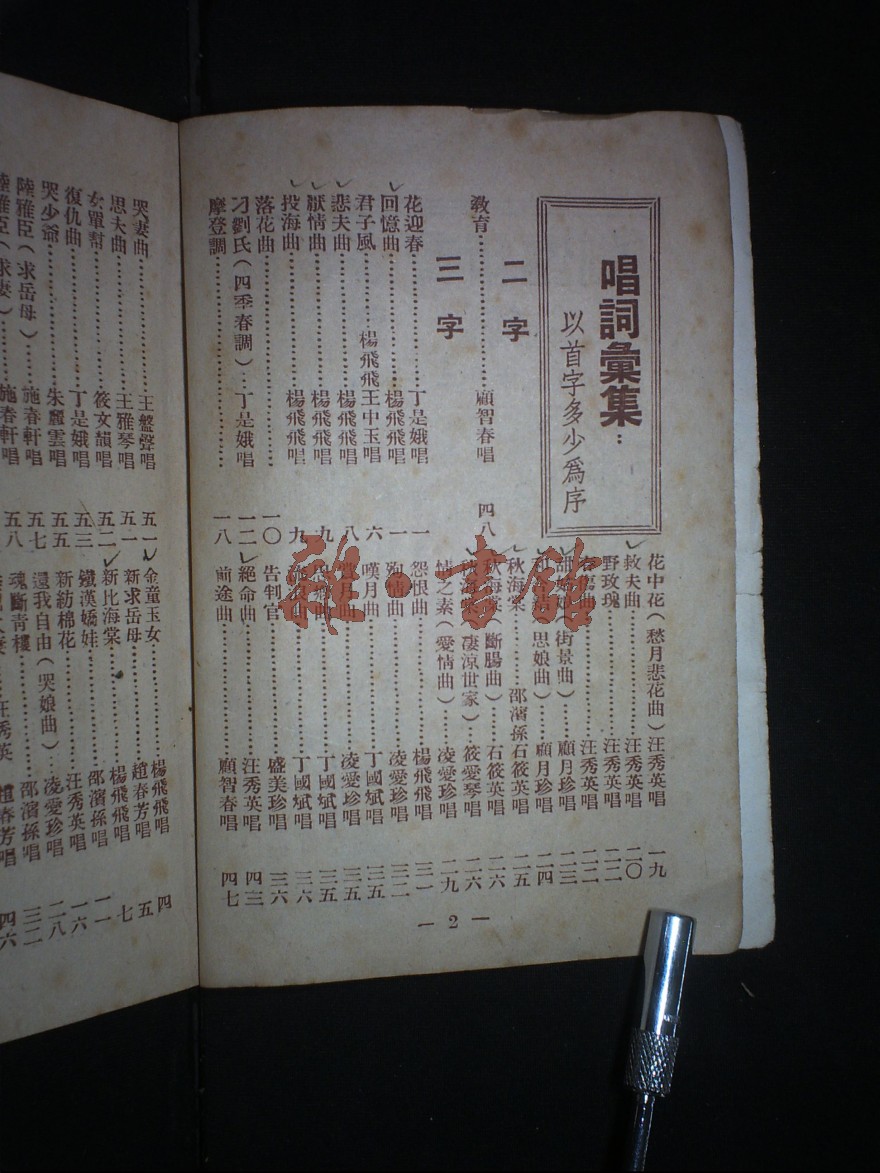 唱詞彙集：
以首字多少爲序
二字
教育………顧智春唱 四八
三字
花迎春………丁是娥唱 一
回憶曲………楊飛飛唱 一
君子風………楊飛飛王中玉唱 六
悲夫曲………楊飛飛唱 八
厭情曲………楊飛飛唱 九
投海曲………楊飛飛唱 九
落花曲………
刁劉氏（四季春調）…丁是娥唱 一二
摩登調……… 一八
花中花（愁月悲花曲）汪秀英唱 一九
救夫曲………汪秀英唱 二〇
野玫瑰………汪秀英唱 二二
汪秀英唱 二二
街景曲）……顧月珍唱 二三
思娘曲）……顧月珍唱 二四
秋海棠………邵濱孫石筱英唱 二五
秋海棠（斷腸曲）……石筱英唱 二六
秋海棠（凄涼世家）…筱愛琴唱 二六
情之素（愛情曲）……凌愛珍唱 二九
怨恨曲………楊飛飛唱 三一
殉情曲………凌愛珍唱 三二
嘆月曲………丁國斌唱 三五
凌愛珍唱 三五
丁國斌唱 三五
丁國斌唱 三六
告判官………盛美珍唱 三六
絕命曲………汪秀英唱 四三
前途曲………顧智春唱 四七
— 2 —
哭妻曲………王盤聲唱 五一
思夫曲………王雅琴唱 五一
女單幫………筱文韻唱 五二
復仇曲………丁是娥唱 五三
哭少爺………朱麗雲唱 五五
陸雅臣（求岳母）……施春軒唱 五七
陸雅臣（求妻）……施春軒唱 五八
金童玉女………楊飛飛唱 四
新求岳母………趙春芳唱 五
新比海棠………楊飛飛唱 七
鐵漢嬌娃………邵濱孫唱 一一
新紡棉花………汪秀英唱 一六
還我自由（哭娘曲）…凌愛珍唱 二八
魂斷青樓………邵濱孫唱 三二
汪秀英 趙春芳唱 四六
雜·書館